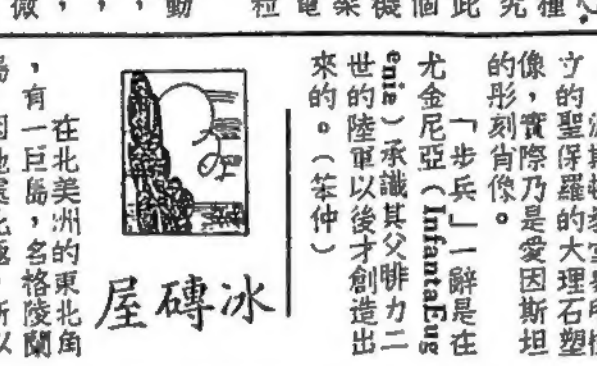 種
究
此
個
機
架
電
粒
動
，
，
，
微
立的聖保羅的大理石塑
像，實際乃是愛因斯坦
的彫刻肖像。
「步兵」一辭是在
尤金尼亞（InfantaEug
enia）承識其父腓力二
世的陸軍以後才創造出
來的。（笨仲）
冰磚屋
在北美洲的東北角
，有一巨島，名格陵蘭